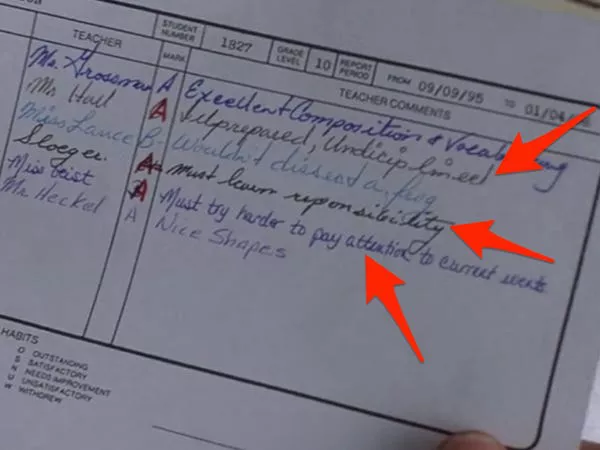 TEACHER
STUDENT NUMBER 1827 GRADE LEVEL 10 REPORT PERIOD FROM 09/09/95 TO 01/04/
MARK
TEACHER COMMENTS
Mr. Grossman A Excellent Composition & Vocabulary
Mr Hall A Unprepared, Undiciplined
Miss Lance B- Wouldn't dissect a frog
Sloeger. A- must learn reponsibility
Miss Geist A Must try harder to pay attention to current events
Mr. Heckel A Nice Shapes
HABITS
O OUTSTANDING
S SATISFACTORY
N NEEDS IMPROVEMENT
U UNSATISFACTORY
W WITHDREW